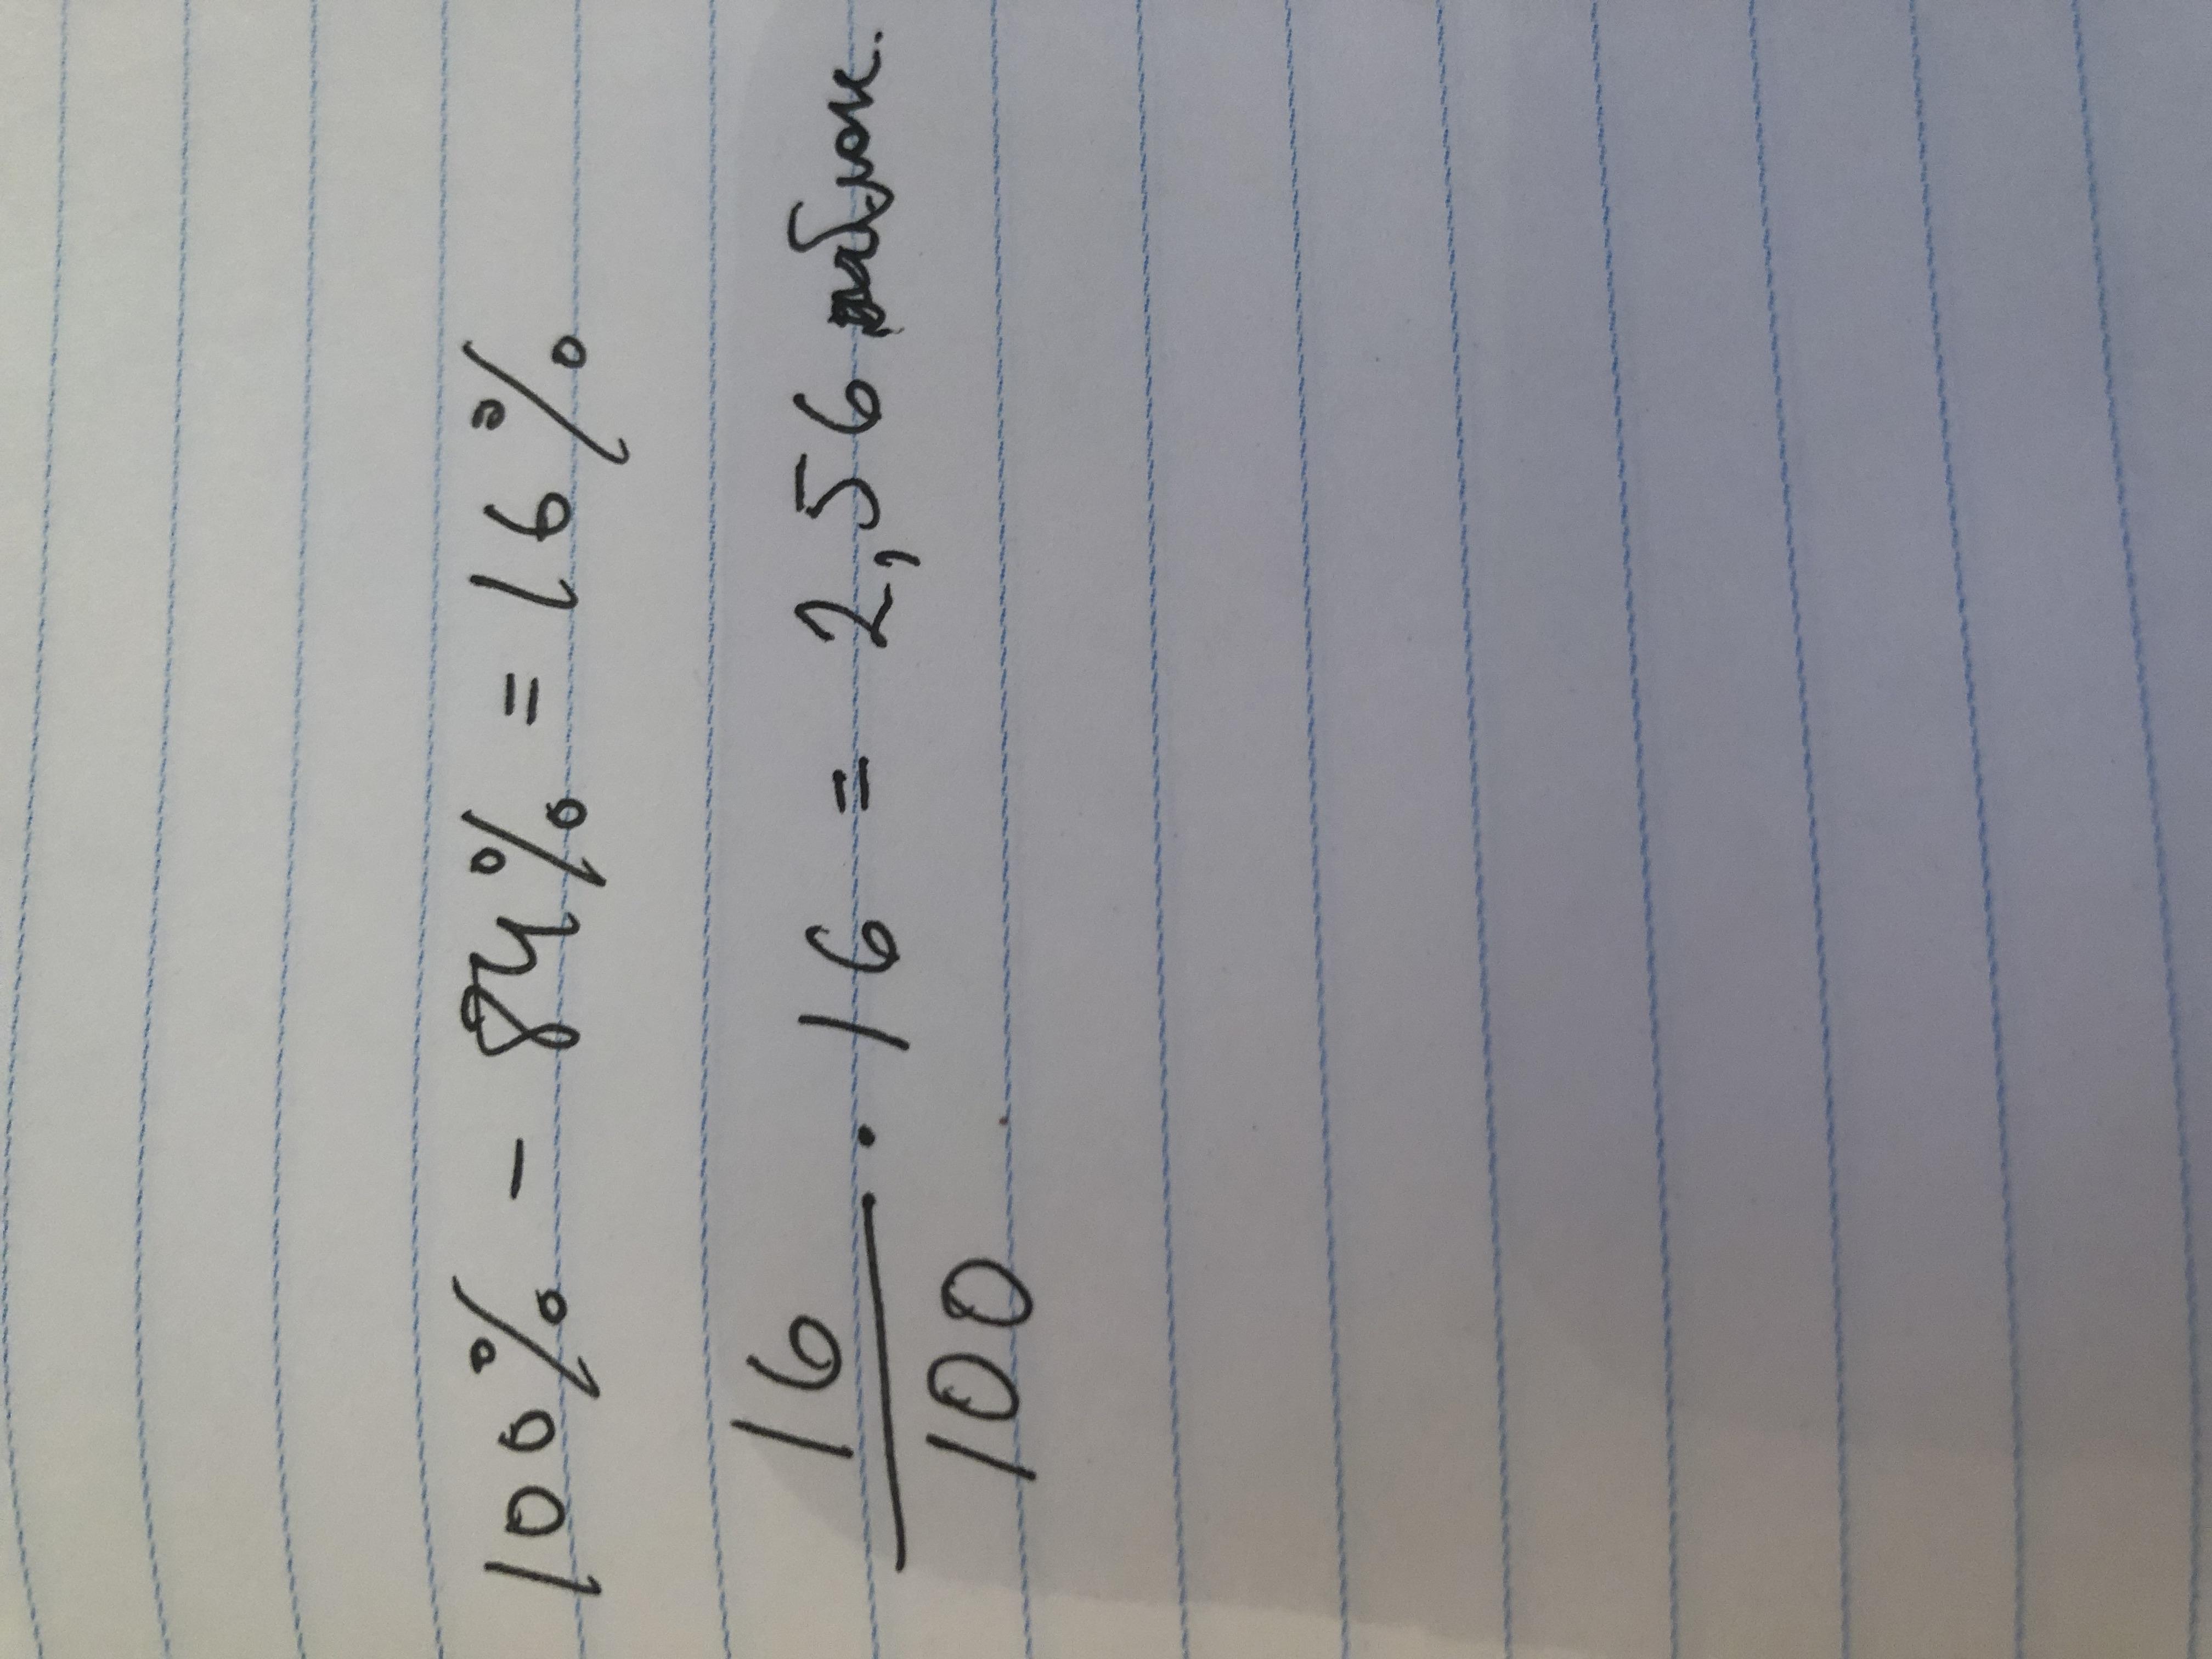 100% - 84% = 16%
16
—— · 16 = 2,56 яблок.
100